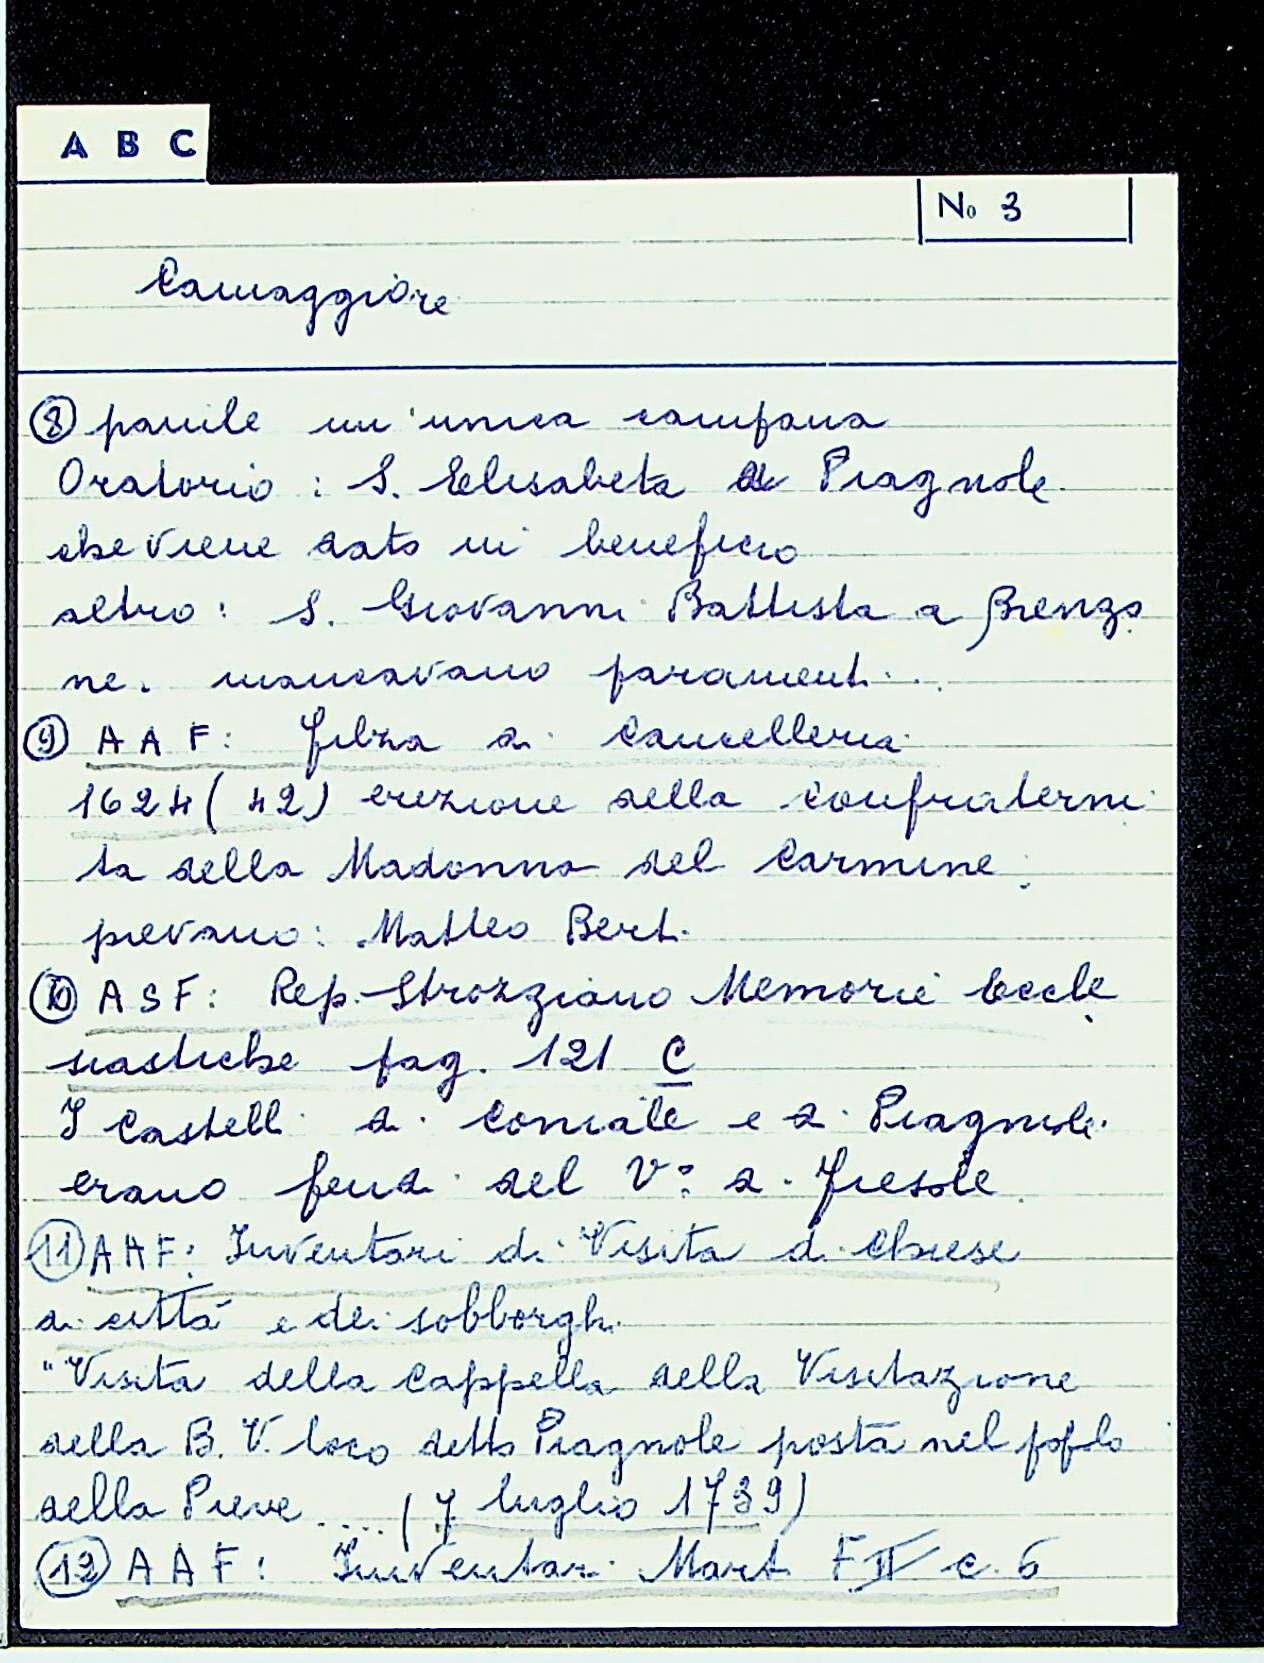 A B C
No 3
Camaggiore
⑧ panile un'unica campana
Oratorio: S. Elisabeta a Piagnole
che viene dato in beneficio
altro: S. Giovanni Battista a Brenzo
ne. mancavano paramenti...
⑨ A A F: filza di Cancelleria
1624 (42) erezione della confraterni
ta della Madonna del Carmine.
pievano: Matteo Berti.
⑩ A S F: Rep. Strozziano Memorie Eccle
siastiche pag. 121 C
I Castelli di Coniale e di Piagnole
erano feudi del V.º di Fiesole
⑪ A A F: Inventari di Visita di Chiese
di città e dei sobborghi.
"Visita della Cappella della Visitazione
della B. V. loco detto Piagnole posta nel popolo
della Pieve .... (7 luglio 1739)
⑫ A A F: Inventari Mart. F II c. 6